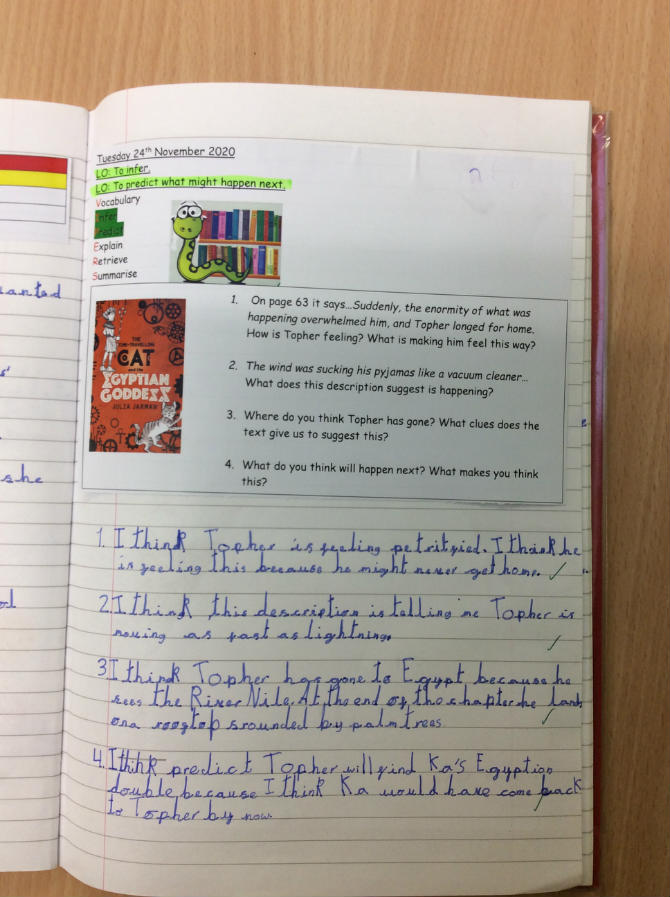 Tuesday 24th November 2020
LO: To infer.
LO: To predict what might happen next.
Vocabulary
Infer
Predict
Explain
Retrieve
Summarise
anted
s'
she
THE
TIME-TRAVELLING
CAT
and the
EGYPTIAN
GODDESS
JULIA JARMAN
1. On page 63 it says...Suddenly, the enormity of what was
happening overwhelmed him, and Topher longed for home.
How is Topher feeling? What is making him feel this way?
2. The wind was sucking his pyjamas like a vacuum cleaner...
What does this description suggest is happening?
3. Where do you think Topher has gone? What clues does the
text give us to suggest this?
4. What do you think will happen next? What makes you think
this?
1. I think Topher is feeling petrified. I think he
is feeling this because he might never get home.
2. I think this description is telling me Topher is
moving as fast as lightning.
3 I think Topher has gone to Egypt because he
sees the River Nile. At the end of the chapter he lands
on a rooftop srounded by palm trees
4. I think predict Topher will find Ka's Egyption
double because I think Ka would have come back
to Topher by now.